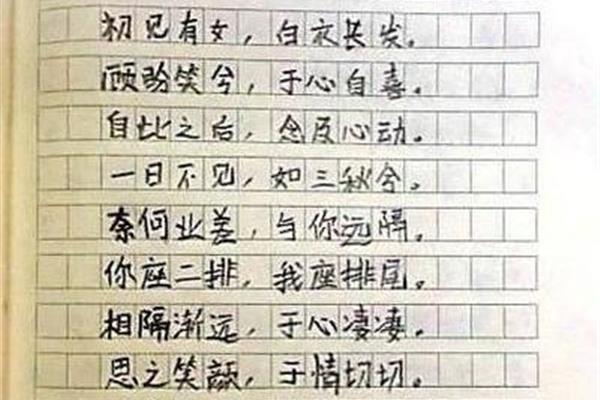 初见有女，白衣长发。
顾盼笑兮，于心自喜。
自此之后，念及心动。
一日不见，如三秋兮。
奈何业差，与你远隔。
你座二排，我座排尾。
相隔渐远，于心凄凄。
思之笑颜，于情切切。